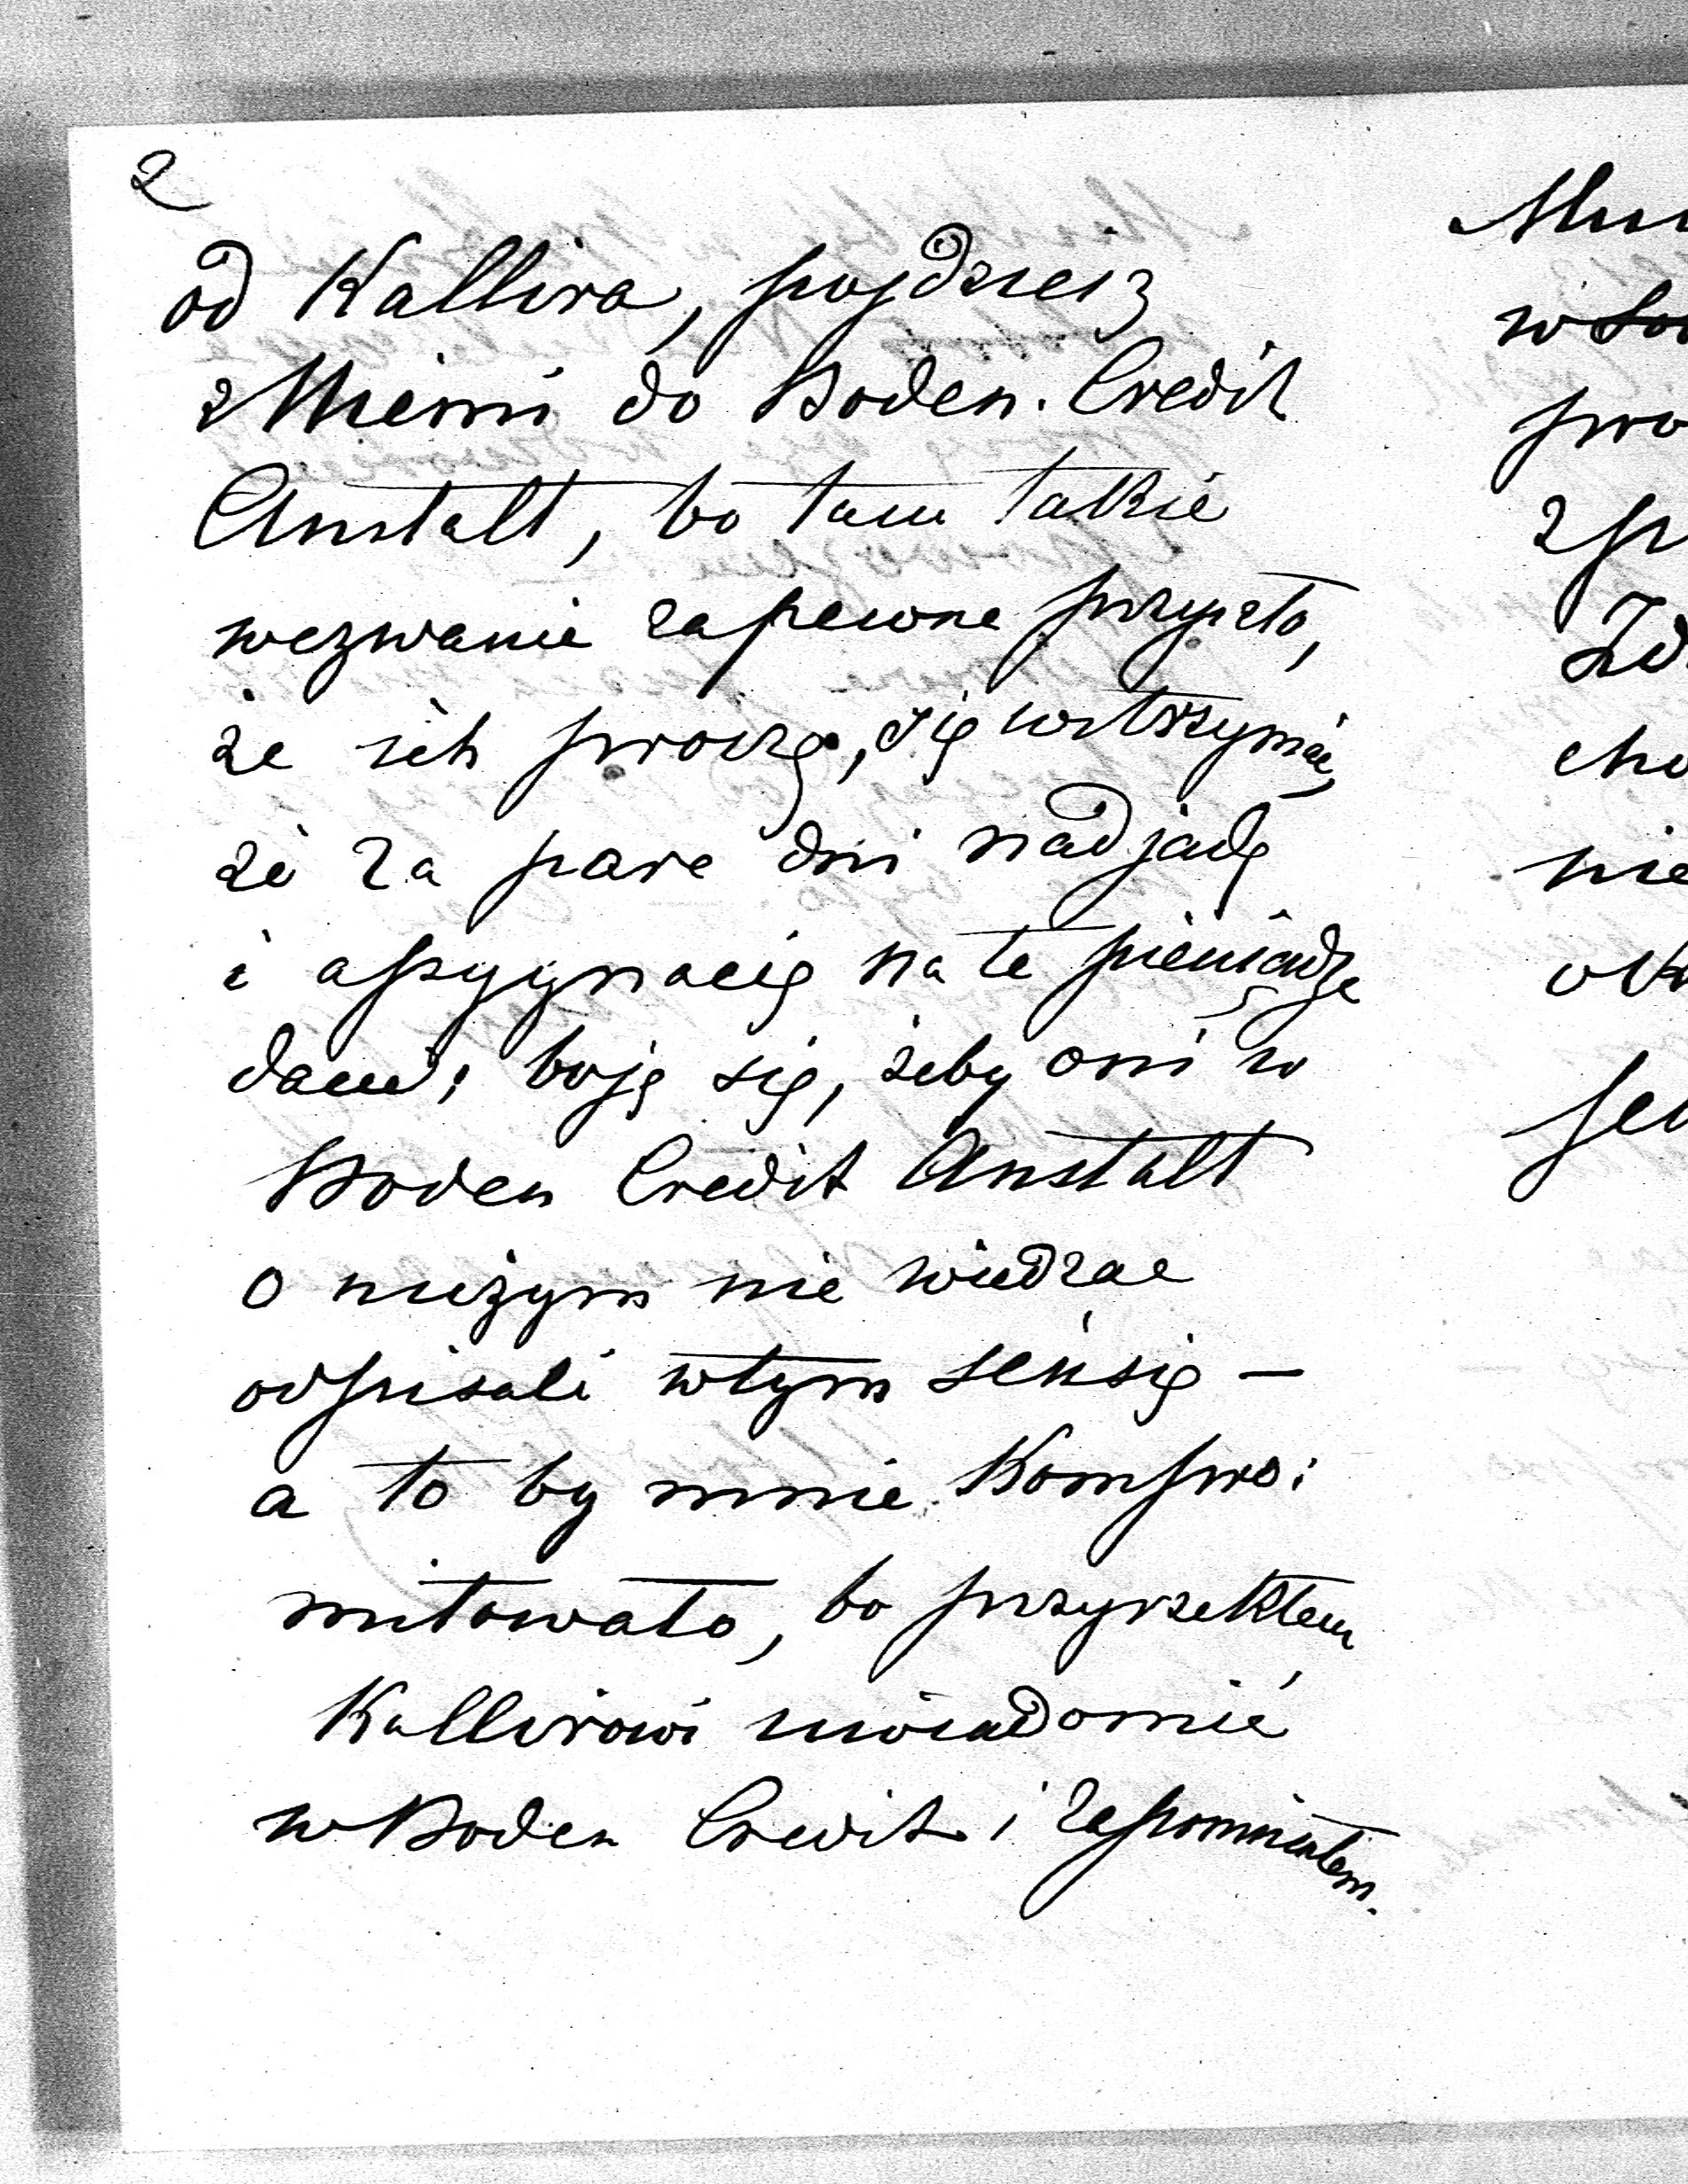 2
od Kallira, pojdziesz
z Niemi do Boden. Credit
Anstalt, bo tam takie
wezwanie zapewne przyszło,
że ich proszę, się wstrzymać,
że za pare dni nadjadę
i assygnacię na te pieniądze
dam; boję się, żeby oni w
Boden Credit Anstalt
o niczym nie wiedzac
odpisali w tym sensie –
a to by mnie kompro:
mitowało, bo przyrzekłem
Kallirowi uwiadomić
w Boden Credit i zapomniałem.